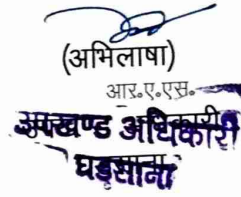 (अभिलाषा)
आर.ए.एस.
उपखण्ड अधिकारी
घड़साना